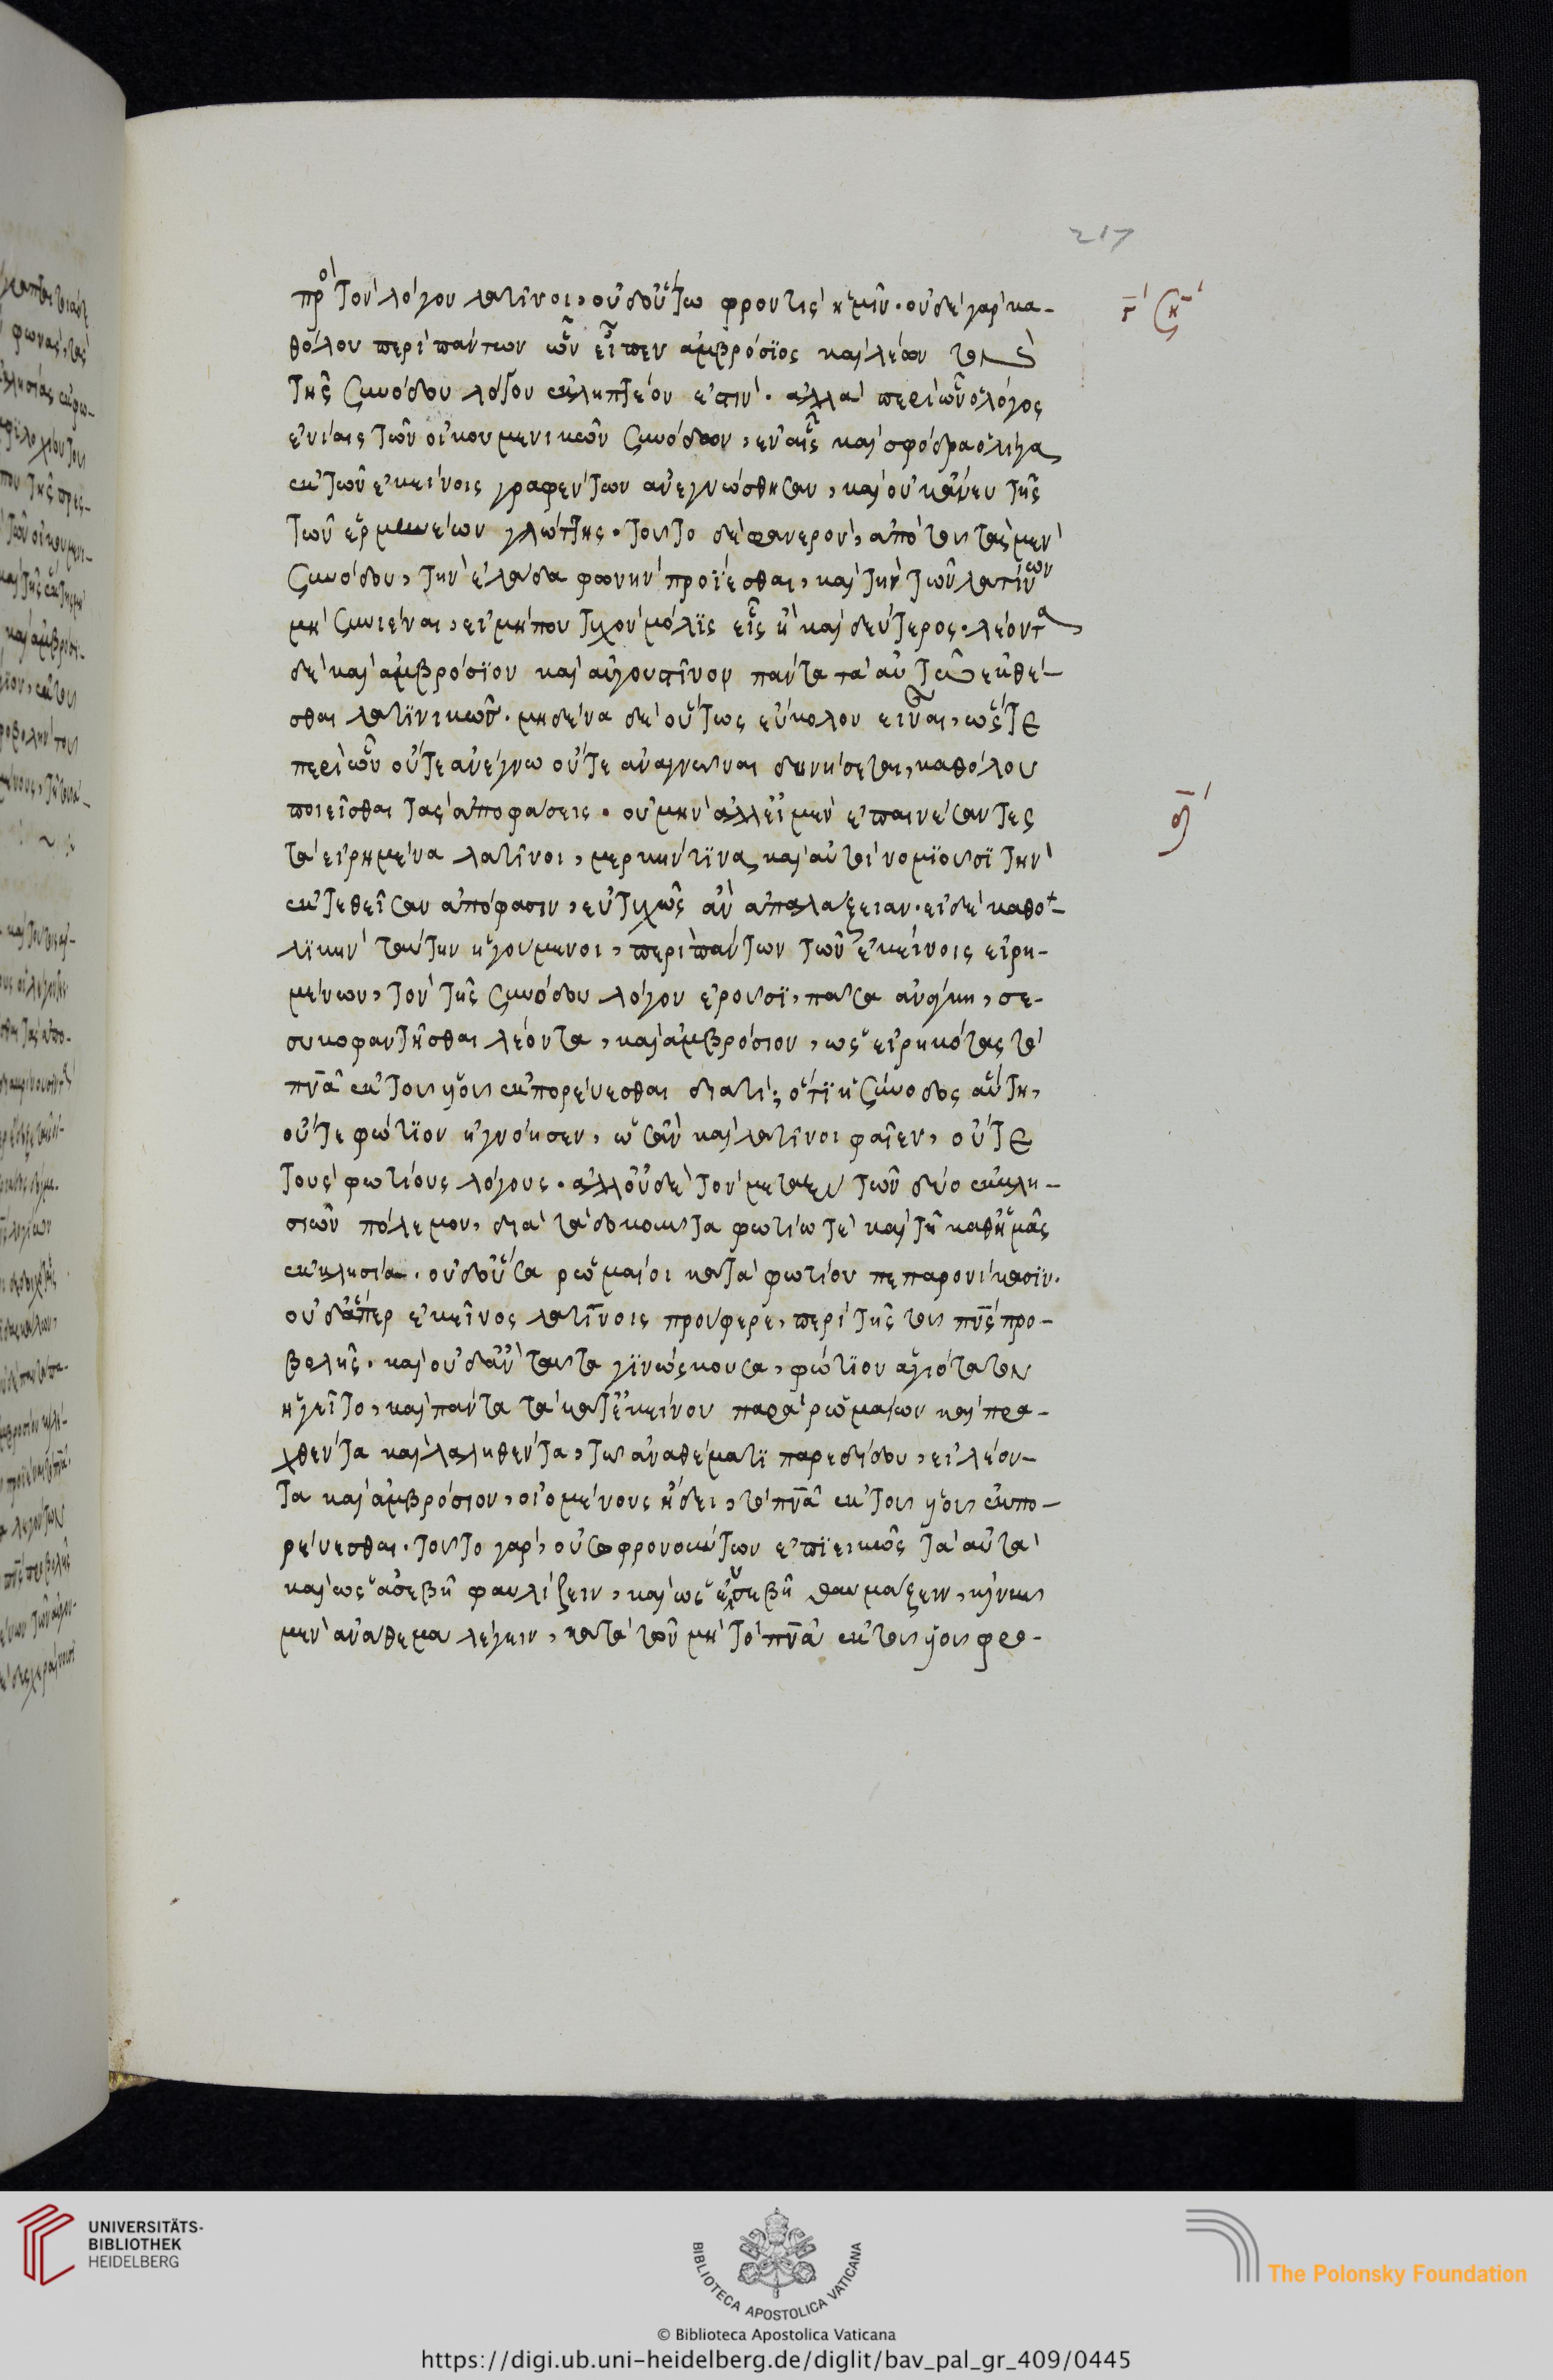 217
πρὸ τὸν λόγον λατῖνοι, οὐδ' οὕτω φροντὶς ἡμῖν. οὐδὲ γὰρ κα-
γ΄ ϛ η΄
θόλου περὶ πάντων ὧν εἶπεν ἀμβρόσϊος καὶ λέων
τῆς συνόδου λόγον ἐκληπτέον ἐστίν. ἀλλὰ περὶ ὧν ὁ λόγος
ἐνίαις τῶν οἰκουμενικῶν συνόδων, ἐν αἷς καὶ σφόδρα ὀλίγα
ἐκ τῶν ἐκείνοις γραφέντων ἀνεγνώσθησαν, καὶ οὐκ ἄνευ τῆς
τῶν ἑρμηνέων γλώττης. τοῦτο δὲ φανερὸν, ἀπὸ τοῦ τὰς μὲν
συνόδου, τὴν ἑλάδα φωνὴν προΐεσθαι, καὶ τὴν τῶν λατίνων
μὴ συνιέναι, εἰ μήπου τυχὸν μόλϊς εἷς ἢ καὶ δεύτερος. λέοντα
δὲ καὶ ἀμβρόσϊον καὶ αὐγουστῖνον πάντα τὰ αὐτῶν ἐκθέ-
σθαι λατϊνικῶς. μηδένα δὲ οὕτως εὔκολον εἶναι, ὥς τε
περὶ ὧν οὔτε ἀνέγνω οὔτε ἀναγνῶναι δυνήσεται, καθόλου
ποιεῖσθαι τὰς ἀποφάσεις. οὐ μὴν ἀλλ' εἰ μὲν ἐπαινέσαντες
θ΄
τὰ εἰρημένα λατῖνοι, μερικήν τϊνα καὶ αὐτοὶ νομίουσϊ τὴν
ἐκτεθεῖσαν ἀπόφασιν, εὐτυχῶς ἂν ἀπαλάξειαν. εἰ δὲ καθο-
λϊκὴν ταύτην ἡγούμενοι, περὶ πάντων τῶν ἐκείνοις εἰρη-
μένων, τὸν τῆς συνόδου λόγον ἐροῦσϊ, πᾶσα ἀνάγκη, σε-
συκοφαντῆσθαι λέοντα, καὶ ἀμβρόσιον, ὡς εἰρηκότας τὸ
πνᾶ ἐκ τοῦ υἱοῦ ἐκπορεύεσθαι διατί; ὅτϊ ἡ σύνοδος αὕτη,
οὔτε φώτϊον ἠγνόησεν, ὡς ἂν καὶ λατῖνοι φαῖεν, οὔτε
τοὺς φωτίους λόγους. ἀλλ' οὐδὲ τὸν μεταξὺ τῶν δύο ἐκκλη-
σιῶν πόλεμον, διὰ τὰ δοκοῦντα φωτίω τὲ καὶ τῇ καθ' ἡμᾶς
ἐκκλησία. οὐδ' ὅσα ῥωμαίοι κατὰ φωτίου πεπαρονίκασϊν.
οὐδ' ἅπερ ἐκεῖνος λατίνοις προύφερε, περὶ τῆς τοῦ πνς προ-
βολῆς. καὶ οὐδ' ἂν ταῦτα γϊνώσκουσα, φώτϊον ἁγιότατον
ἡγεῖτο, καὶ πάντα τὰ κατ' ἐκείνου παρὰ ῥωμαίων καὶ πρα-
χθέντα καὶ λαληθέντα, τῶ ἀναθέματϊ παρεδίδου, εἰ λέον-
τα καὶ ἀμβρόσιον, οἰομένους ἤδει, τὸ πνᾶ ἐκ τοῦ υἱοῦ ἐκπο-
ρεύεσθαι. τοῦτο γὰρ, οὐ σωφρονούντων ἐπϊεικῶς τὰ αὐτὰ
καὶ ὡς ἀσεβῆ φαυλίζειν, καὶ ὡς εὐσεβῆ θαυμάζειν,
μὲν ἀνάθεμα λέγειν, κατὰ τῶν μὴ τὸ πνᾶ ἐκ τοῦ υἱοῦ φρο-
UNIVERSITÄTS-
BIBLIOTHEK
HEIDELBERG
BIBLIOTECA APOSTOLICA VATICANA
The Polonsky Foundation
© Biblioteca Apostolica Vaticana
https://digi.ub.uni-heidelberg.de/diglit/bav_pal_gr_409/0445